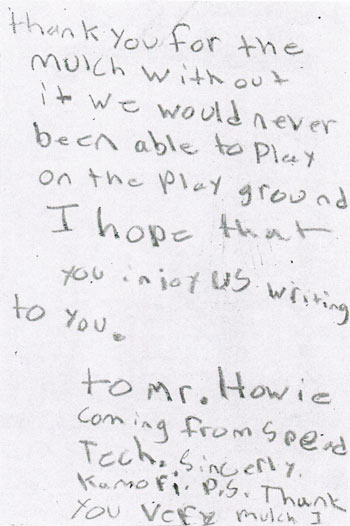 thank you for the
mulch without
it we would never
been able to play
on the play ground
I hope that
you injoy us writing
to you.
to mr. Howie
coming from Speed
Tech. Sincerly,
Kamori. P.S. Thank
you very mulch I